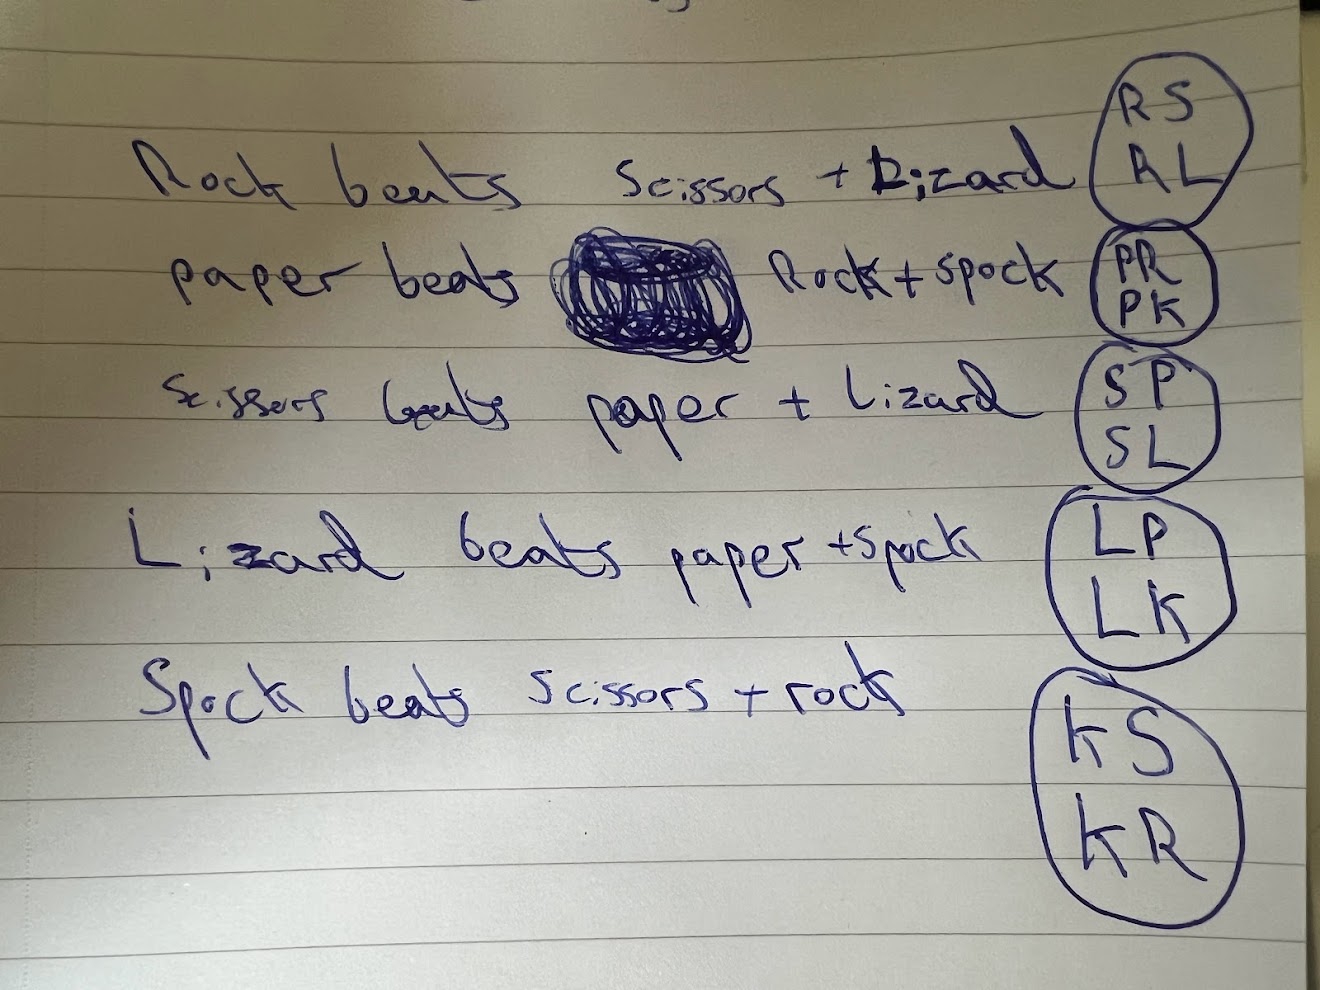 Rock beats Scissors + Lizard RS
RL
paper beats Rock + spock PR
PK
Scissors beats paper + Lizard SP
SL
Lizard beats paper + spock LP
LK
Spock beats scissors + rock KS
KR